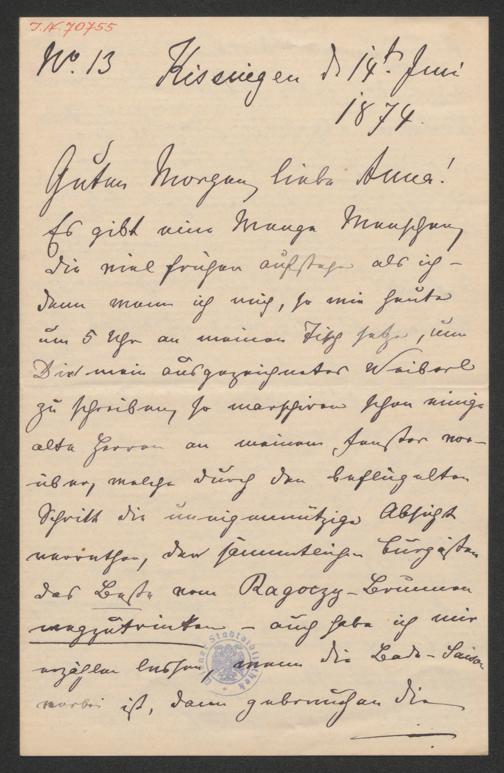 J.N. 70755
No. 13 Kissingen d 14t. Juni
1874.
Guten Morgen, liebe Anna!
Es gibt eine Menge Menschen,
die viel früher aufstehn als ich –
denn wenn ich mich, so wie heute
um 5 Uhr an meinen Tisch setze, um
Dir mein ausgezeichnetes Weiberl
zu schreiben, so marschiren schon einige
alte Herren an meinem Fenster vor-
über, welche durch den beflügelten
Schritt die uneigennützige Absicht
verrathen, den sämmtlichen Curgästen
das Beste vom Ragoczy-Brunnen
wegzutrinken – auch habe ich mir
erzählen lassen, wenn die Bade-Saison
vorbei ist, dann gebrauchen die